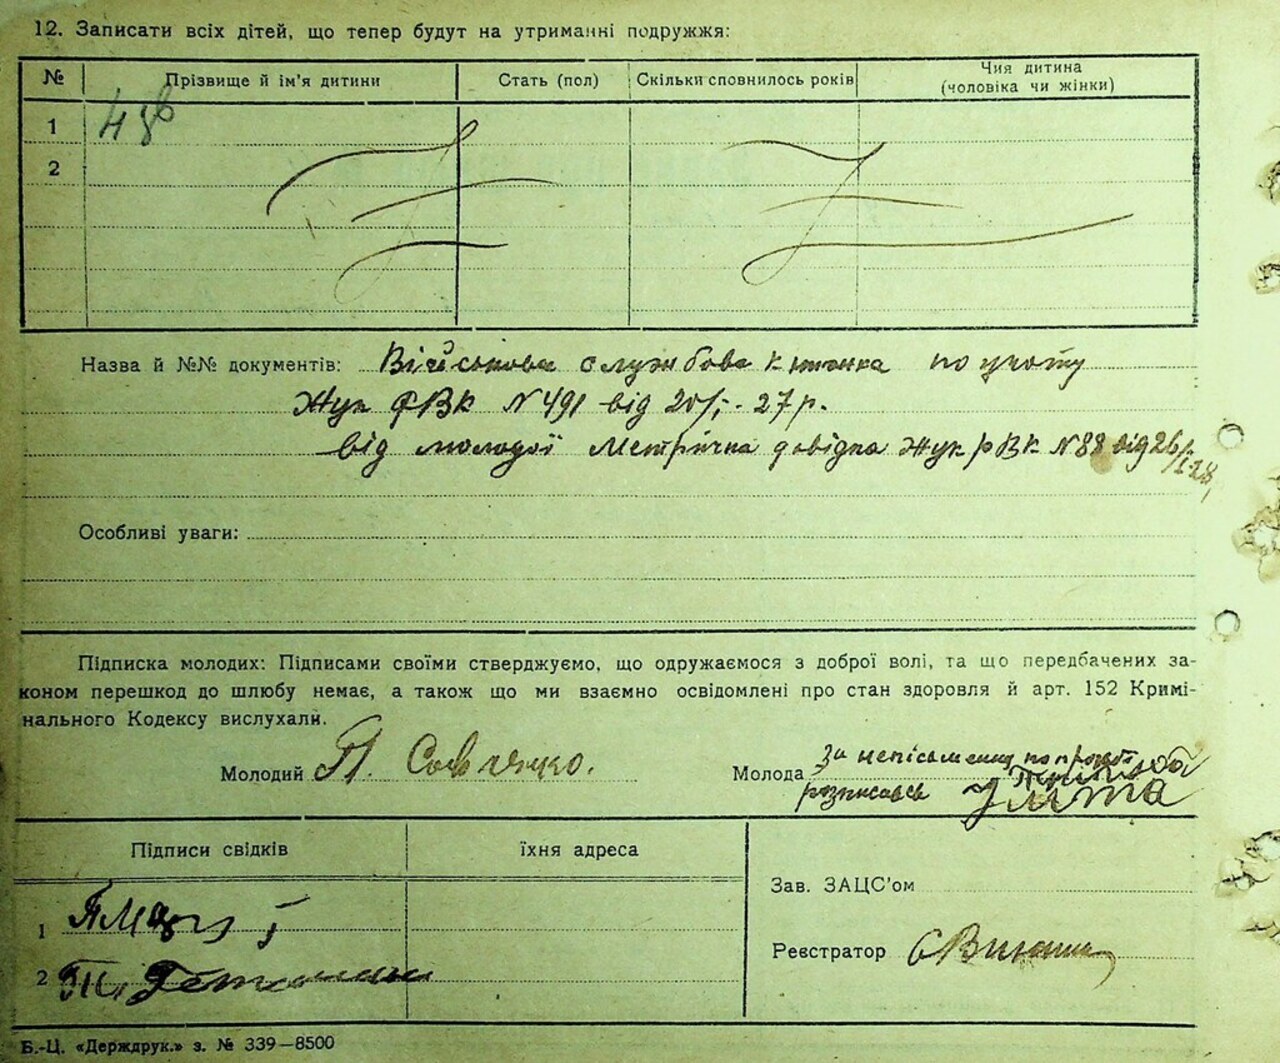 12. Записати всіх дітей, що тепер будут на утриманні подружжя:
№ Прізвище й ім'я дитини Стать (пол) Скільки сповнилось років Чия дитина (чоловіка чи жінки)
1
2
Назва й №№ документів: Військова службова книжка по учоту
Жук РВК N 491 від 20/ 27 р.
від молодої Метрична довідка Жук РВК N 88 від 26/I-28
Особливі уваги:
Підписка молодих: Підписами своїми стверджуємо, що одружаємося з доброї волі, та що передбачених за-
коном перешкод до шлюбу немає, а також що ми взаємно освідомлені про стан здоровля й арт. 152 Кримі-
нального Кодексу вислухали.
Молодий П. Савченко. Молода За неписьменну по просьбі
розписався
Підписи свідків їхня адреса
Зав. ЗАЦС'ом
1
Реєстратор
2
Б.-Ц. «Держдрук.» з. № 339—8500